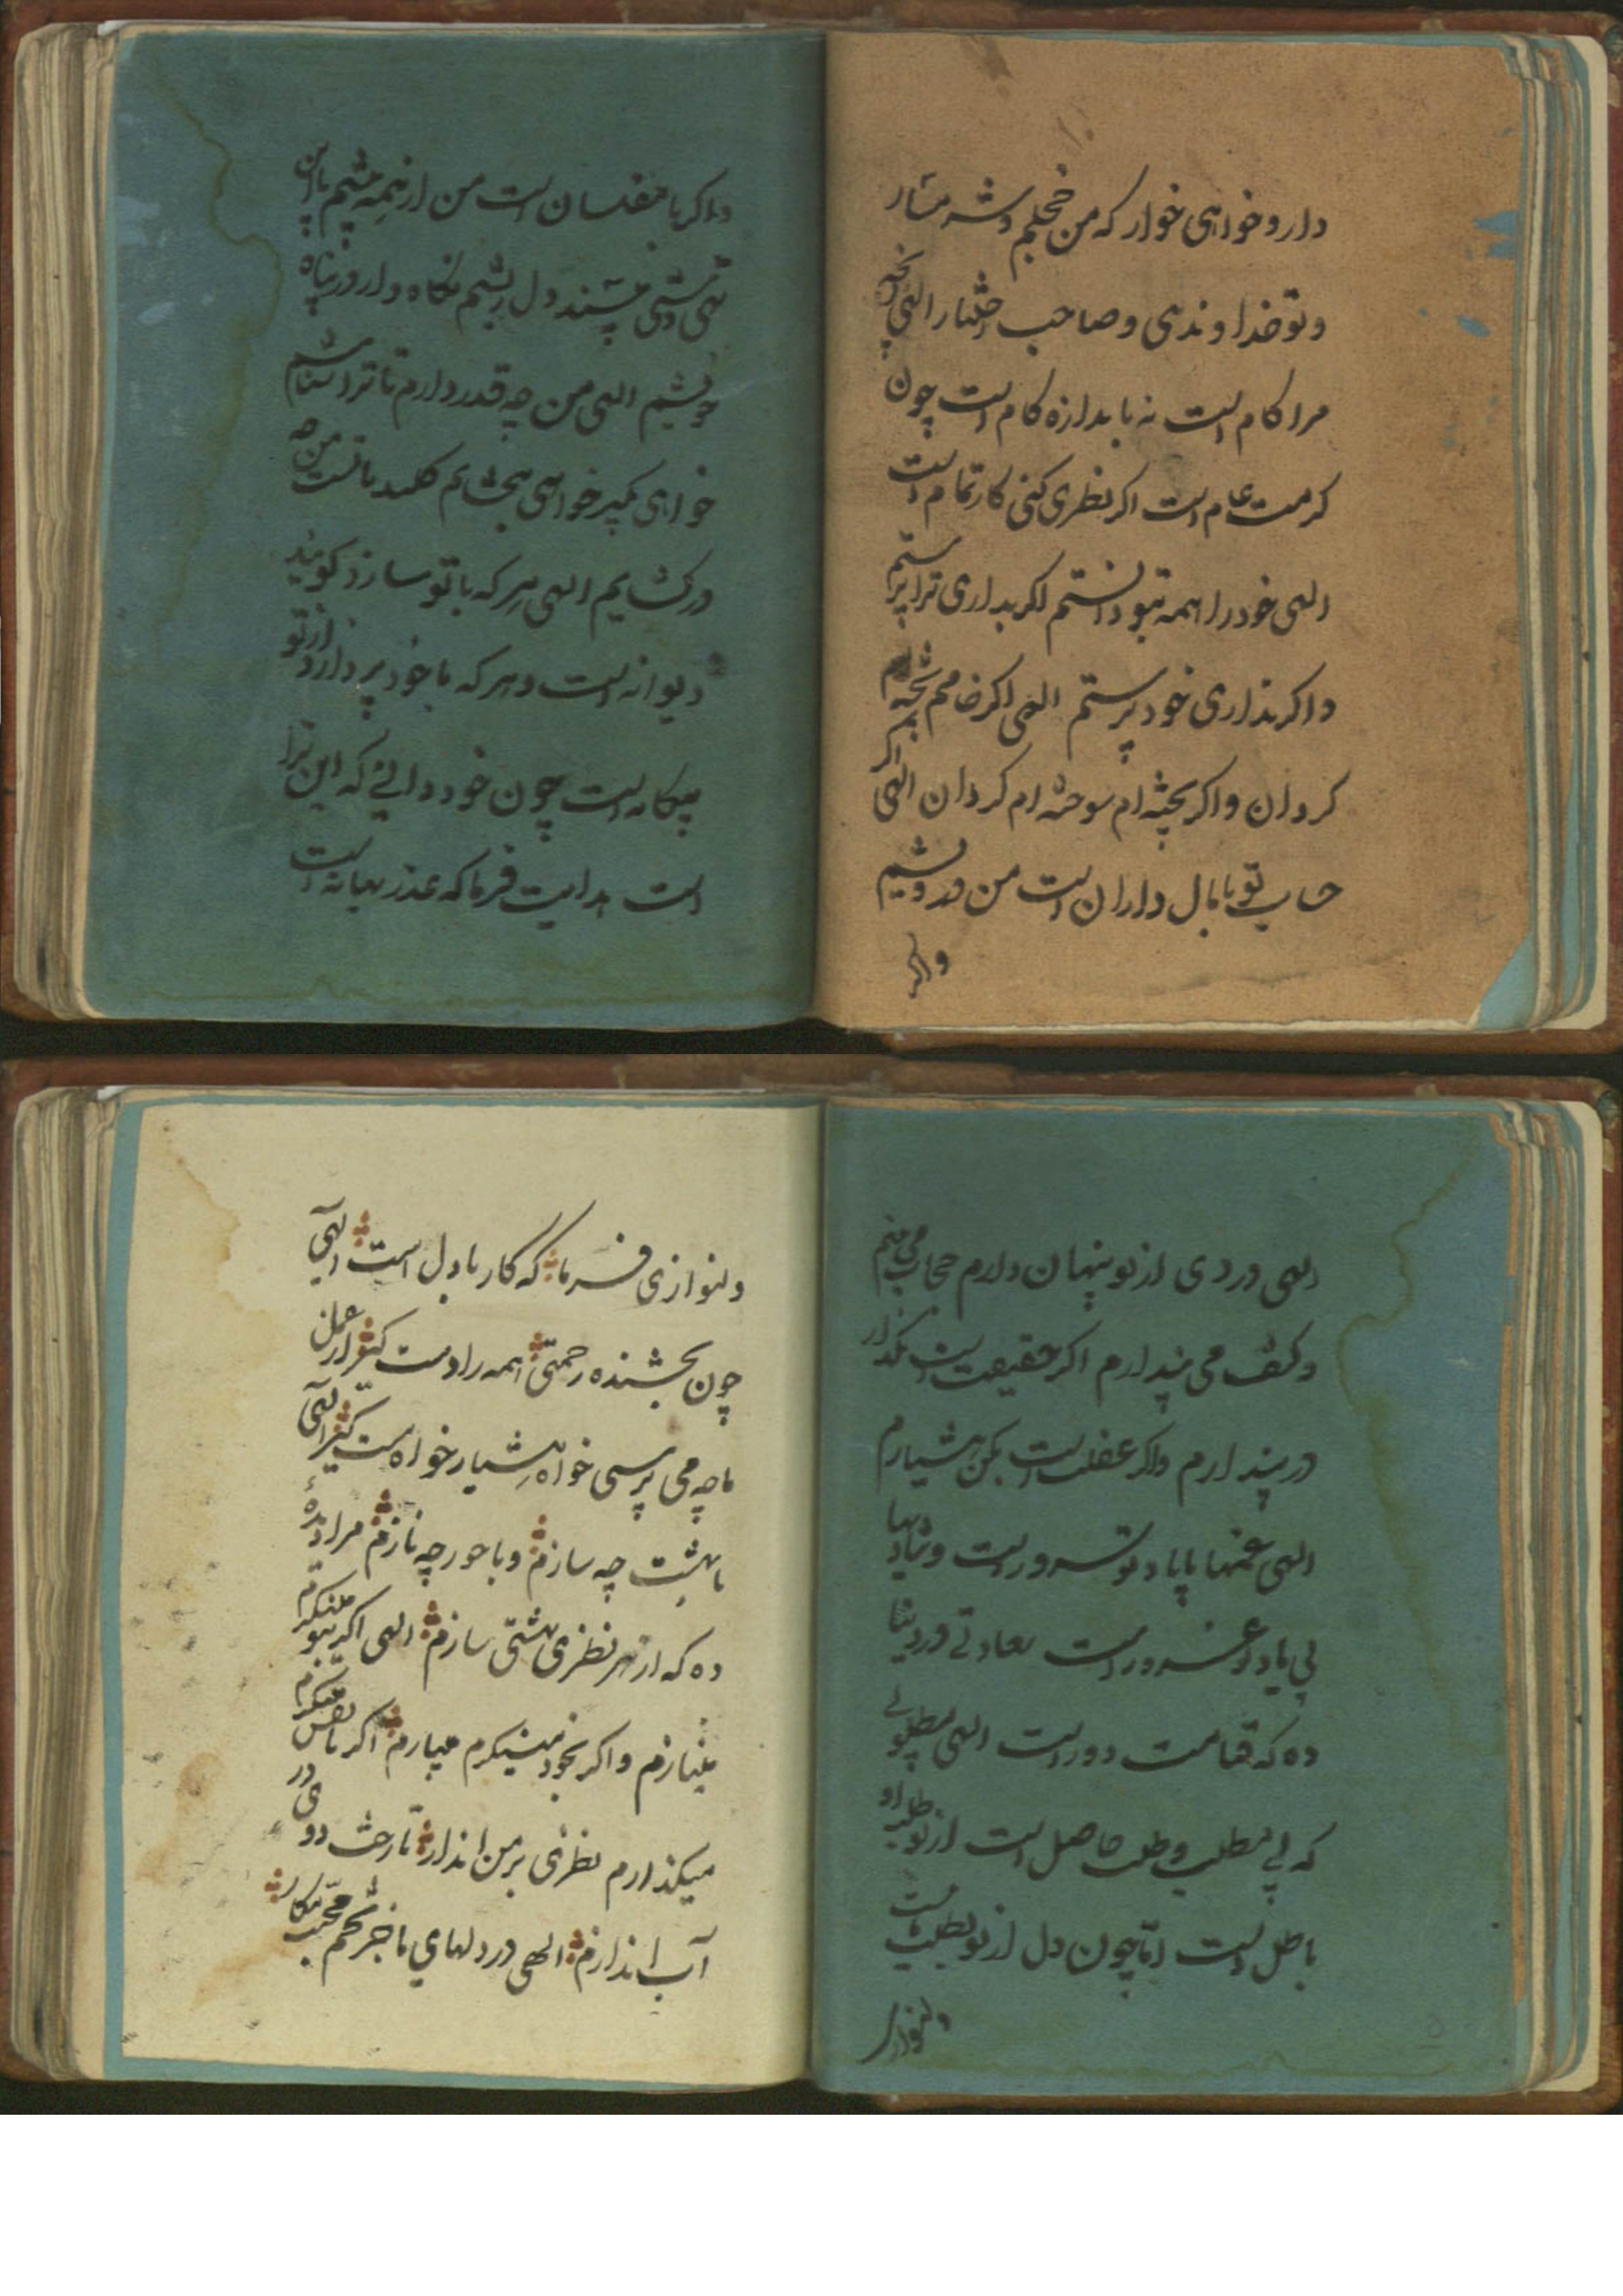 دار و خواهی خوار که من خجلم و شرمسار
و تو خداوندی و صاحب اختیار الهی آنچه
مرا کام است نه باندازه کام است چون
کرمت عام است اگر نظری کنی کار تمام است
الهی خود را همه بتو دانستم اگر بداری ترا پرستم
واگر نداری خود پرستم الهی اگر خامم پخته ام
کردان واگر پخته ام سوخته ام کردان الهی اگر
حساب تو با مال داران است من درویشم
واگر
واگر با مفلسان است من از همه پیشم با این
تهی دستی مپسند دل ریشم نگاه دار و در پناه
خویشم الهی من چه قدر دارم تا ترا شناسم
خواهی بگیر خواهی ببخش کلید با تست من چه
در کشایم الهی هر که با تو سازد کویند
دیوانه است و هر که با خود پردازد از تو
بیکانه است چون خود دانی که این ترا
است هدایت فرما که عذر بهانه است
الهی دردی از تو پنهان دارم حجاب می بینم
و کشف می پندارم اگر حقیقت است مگذار
در پندارم واگر غفلت است بکن هشیارم
الهی غمها با یاد تو سرور است و شادیها
بی یاد تو غرور است سعادتی در دنیا
ده که قیامت دور است الهی مطلوبی
که بی مطلب و طلب حاصل است از تو طلب او
باطل است اما چون دل از تو بطلب است
دلنوازی
دلنوازی فرما که کار با دل است الهی
چون بخشنده رحمتی همه را دست گیر از عمل
ما چه می پرسی خواه هشیار خواه مست گیر الهی
با بهشت چه سازم و با حور چه نازم مرا دیدهٔ
ده که از هر نظری بهشتی سازم الهی اگر بتو مینگرم
مینازم و اگر بخود مینگرم میبازم اگر با نفس مینگرم
میگذارم نظری بر من انداز تا رخت دوی در
آب اندازم الهی در دلهای ما جز تخم محبت مکار